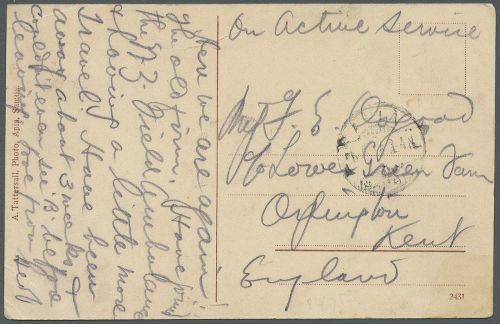 On Active Service
Here we are again!
of the old firm. Have joined
the N.Z. Field Ambulance
& having a little more
travel. Have been
away about 3 weeks &
expect to see B. before
leaving. Love from
A. Tattersall, Photo, Apia, Samoa.
F. E.
Lower Green Farm
Orpington
Kent
England
2431